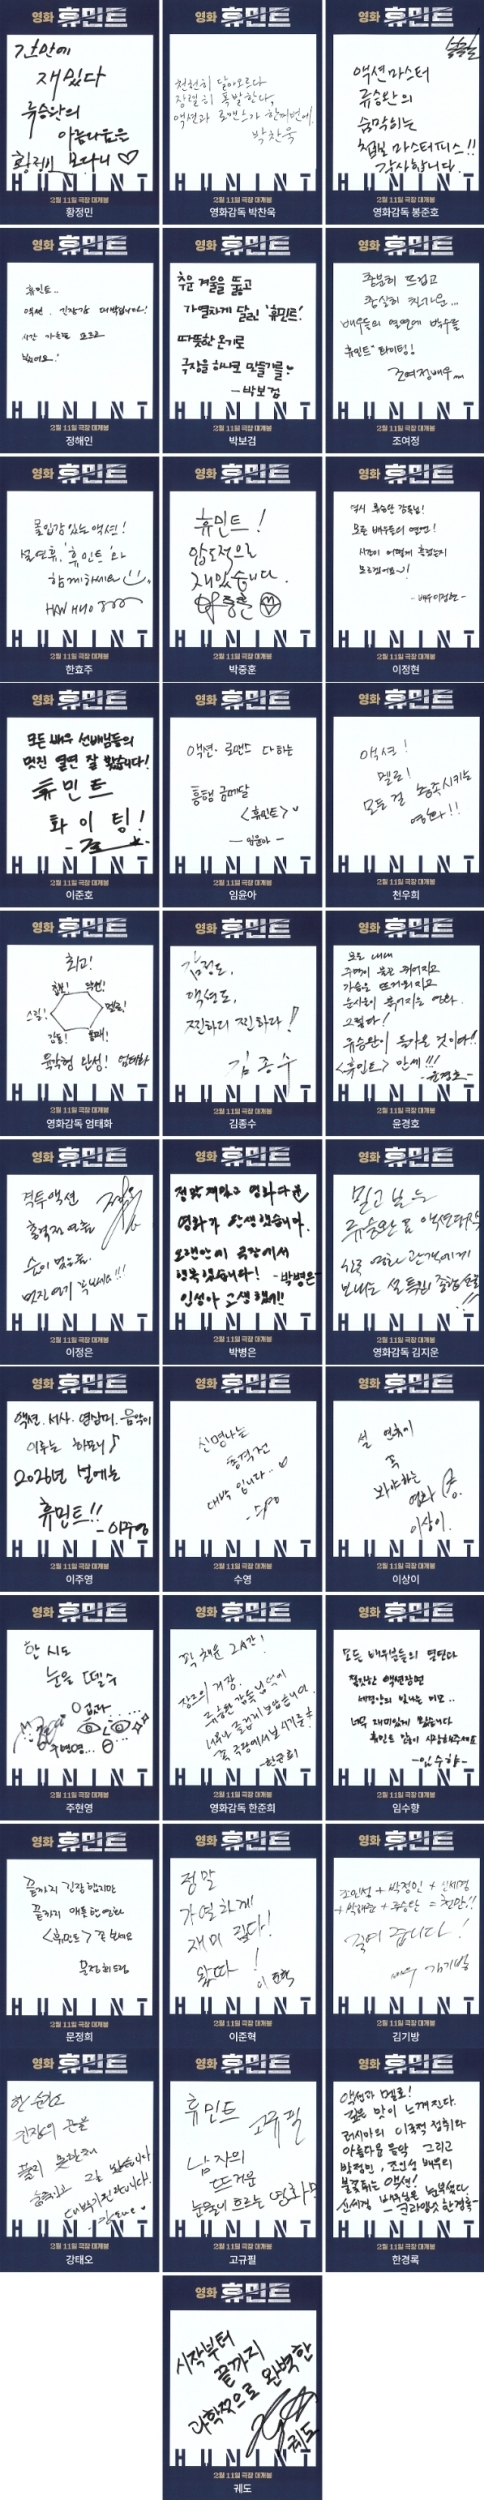 영화 휴민트
간만에
재밌다
류승완의
아름다움은
황정민 모다니 ♡
HUMINT
2월 11일 극장 대개봉
황정민
영화 휴민트
천천히 달아오르다
장렬히 폭발한다,
액션과 로맨스가 한꺼번에.
박찬욱
HUMINT
2월 11일 극장 대개봉
영화감독 박찬욱
영화 휴민트
액션마스터
류승완의
숨막히는
첩보 마스터피스!!
감사합니다.
HUMINT
2월 11일 극장 대개봉
영화감독 봉준호
영화 휴민트
휴민트..
액션, 긴장감 대박입니다!
시간 가는줄 모르고
봤어요!
HUMINT
2월 11일 극장 대개봉
정해인
영화 휴민트
추운 겨울을 뚫고
가열차게 달릴 '휴민트'!
따뜻한 온기로
극장을 하나로 만들기를♡
-박보검
HUMINT
2월 11일 극장 대개봉
박보검
영화 휴민트
충분히 뜨겁고
충실히 차가운...
배우들의 열연에 박수를
휴민트 화이팅!
조여정배우
HUMINT
2월 11일 극장 대개봉
조여정
영화 휴민트
몰입감있는 액션!
설연휴, '휴민트'와
함께하세요
HUMINT
2월 11일 극장 대개봉
한효주
영화 휴민트
휴민트!
압도적으로
재밌습니다.
HUMINT
2월 11일 극장 대개봉
박중훈
영화 휴민트
역시 류승완 감독님!
모든 배우들의 열연!
시간이 어떻게 흘렀는지
모르겠어요~!
-배우이정현-
HUMINT
2월 11일 극장 대개봉
이정현
영화 휴민트
모든 배우 선배님들의
멋진 열연 잘 봤습니다!
휴민트
화이팅!
HUMINT
2월 11일 극장 대개봉
이준호
영화 휴민트
액션. 로맨스 다하는
흥행 금메달
<휴민트>♡
-임윤아-
HUMINT
2월 11일 극장 대개봉
임윤아
영화 휴민트
액션!
멜로!
모든 걸 충족시키는
영화!!
HUMINT
2월 11일 극장 대개봉
천우희
영화 휴민트
최고!
첩보! 액션!
스릴! 멜로!
감동!
육각형 완성! 엄태화
HUMINT
2월 11일 극장 대개봉
영화감독 엄태화
영화 휴민트
감정도,
액션도,
찐하디 찐하다!
김종수
HUMINT
2월 11일 극장 대개봉
김종수
영화 휴민트
보는 내내
주먹이 불끈 쥐어지고
가슴은 뜨거워지고
눈시울이 붉어지는 영화.
그렇다!
류승완이 돌아온 것이다!!
<휴민트> 만세!!!
-윤경호-
HUMINT
2월 11일 극장 대개봉
윤경호
영화 휴민트
격투액션
총격전
숨이 멎을듯
멋진연기 꼭 보세요!!!
HUMINT
2월 11일 극장 대개봉
이정은
영화 휴민트
정말 재밌고 영화다운
영화가 탄생했습니다.
오랜만에 극장에서
행복했습니다! -박병은-
인성아 고생했어!!
HUMINT
2월 11일 극장 대개봉
박병은
영화 휴민트
믿고 보는
류승완 표 액션대작
한국 영화 관객에게
보내는 설 특집 종합선물
!!!
HUMINT
2월 11일 극장 대개봉
영화감독 김지운
영화 휴민트
액션. 서사. 영상미. 음악이
이루는 하모니♪
2026년 설에는
휴민트!!
-이주영
HUMINT
2월 11일 극장 대개봉
이주영
영화 휴민트
신명나는
총격전
대박입니다..♡
HUMINT
2월 11일 극장 대개봉
수영
영화 휴민트
설 연휴에
꼭
봐야하는
영화
이상이.
HUMINT
2월 11일 극장 대개봉
이상이
영화 휴민트
한 시도
눈을 뗄 수
없다
주현영...
HUMINT
2월 11일 극장 대개봉
주현영
영화 휴민트
꽉 채운 2시간!
장르의 귀장.
류승완 감독님 덕에
너무나 즐겁게 보았습니다.
꼭 극장에서 보시기를!
-한준희
HUMINT
2월 11일 극장 대개봉
영화감독 한준희
영화 휴민트
모든 배우님들의 열연과
절묘한 액션장면
세경양의 빛나는 미모..
너무 재미있게 봤습니다
휴민트 많이 사랑해주세요
-임수향-
HUMINT
2월 11일 극장 대개봉
임수향
영화 휴민트
끝까지 긴장했지만
끝까지 매혹한 영화
<휴민트> 꼭 보세요
문정희드림
HUMINT
2월 11일 극장 대개봉
문정희
영화 휴민트
정말
가열하게
재미 있다!
왔따!
이준혁
HUMINT
2월 11일 극장 대개봉
이준혁
영화 휴민트
조인성+박정민+신세경
+박해준+류승완=천만!!
죽여 줍니다!
배우 김기방
HUMINT
2월 11일 극장 대개봉
김기방
영화 휴민트
한 순간도
긴장의 끈을
놓지 못한채
숨죽이고 봤습니다
대박기원합니다!
HUMINT
2월 11일 극장 대개봉
강태오
영화 휴민트
휴민트
고규필
남자의
뜨거운
눈물이 흐르는 영화
HUMINT
2월 11일 극장 대개봉
고규필
영화 휴민트
액션과 멜로!
깊은 맛이 느껴진다.
러시아의 이국적 정취와
아름다운 음악 그리고
박정민, 조인성 배우의
불꽃튀는 액션!
신세경 배우님은 눈부셨다
-크라잉넛 한경록-
HUMINT
2월 11일 극장 대개봉
한경록
영화 휴민트
시작부터
끝까지
과학적으로 완벽한
궤도
HUMINT
2월 11일 극장 대개봉
궤도